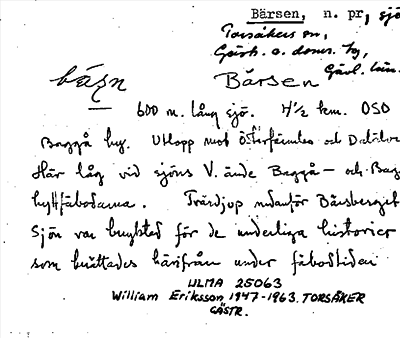 Bärsen, n. pr, sjö
Torsåkers sn,
Gästr. o. doms. hg,
Gävl. län.
bä̀ṣn Bärsen
600 m. lång sjö. 4 ½ km. OSO
Baggå by. Utlopp mot Österfärnebo och Dalälv
Här låg vid sjöns V. ände Baggå- och Bag
hyttfäbodarna. Tvärdjup nedanför Bärsberget
Sjön var beryktad för de underliga historier
som berättades härifrån under fäbodtiden
ULMA 25063
William Eriksson 1947-1963. TORSÅKER
GÄSTR.